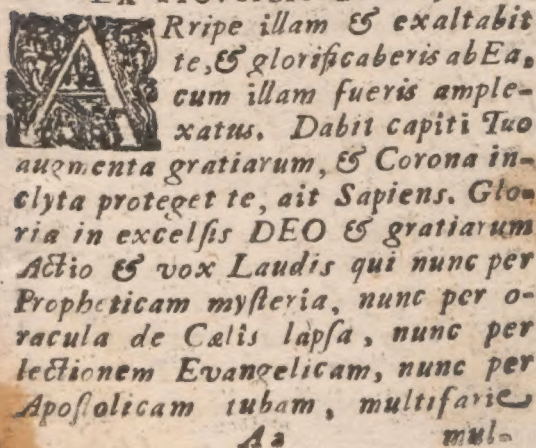 ARripe illam & exaltabit
te, & glorificaberis ab Ea,
cum illam fueris ample-
xatus. Dabit capiti Tuo
augmenta gratiarum, & Corona in-
clyta proteget te, ait Sapiens. Glo-
ria in excelsis DEO & gratiarum
Actio & vox Laudis qui nunc per
Propheticam mysteria, nunc per o-
racula de Cælis lapsa, nunc per
lectionem Evangelicam, nunc per
Apostolicam tubam, multifarie
A2 mul-